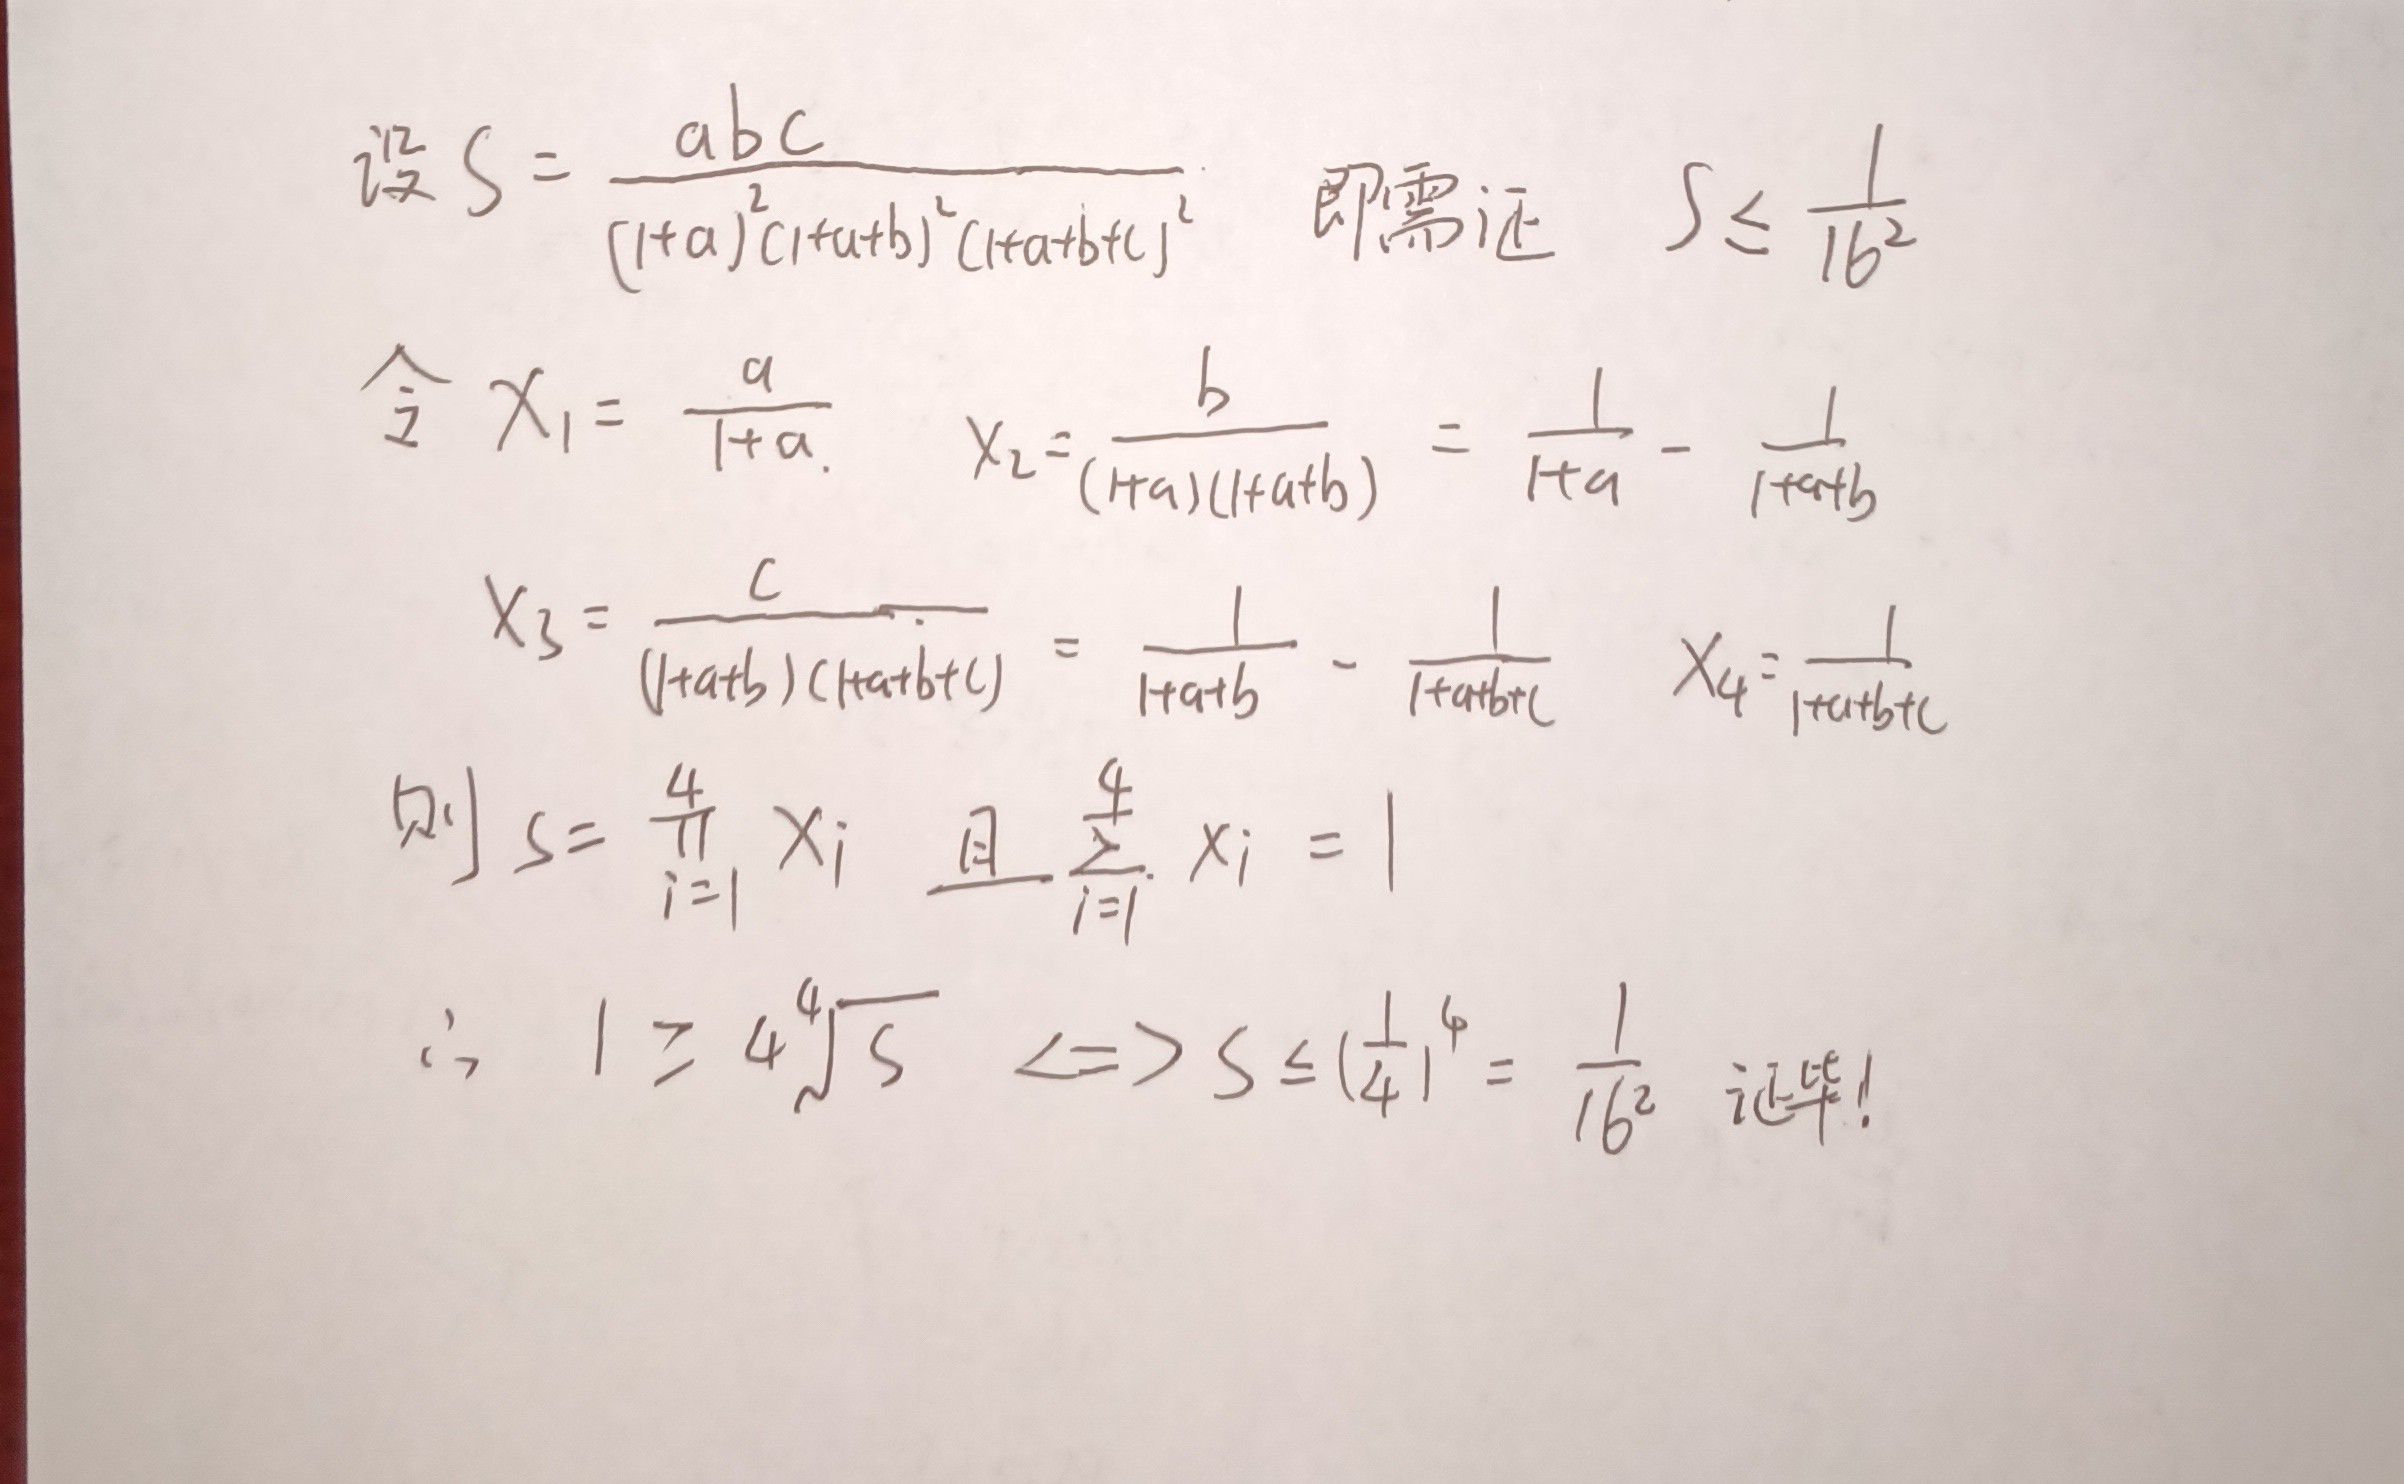 设 S = \frac{abc}{(1+a)^2(1+a+b)^2(1+a+b+c)^2} 即需证 S ≤ \frac{1}{16^2}
令 X_1 = \frac{a}{1+a}. X_2 = \frac{b}{(1+a)(1+a+b)} = \frac{1}{1+a} - \frac{1}{1+a+b}
X_3 = \frac{c}{(1+a+b)(1+a+b+c)} = \frac{1}{1+a+b} - \frac{1}{1+a+b+c} X_4 = \frac{1}{1+a+b+c}
则 S = \prod_{i=1}^{4} X_i 且 \sum_{i=1}^{4} X_i = 1
∴ 1 ≥ 4\sqrt[4]{S} <=> S ≤ (\frac{1}{4})^4 = \frac{1}{16^2} 证毕!